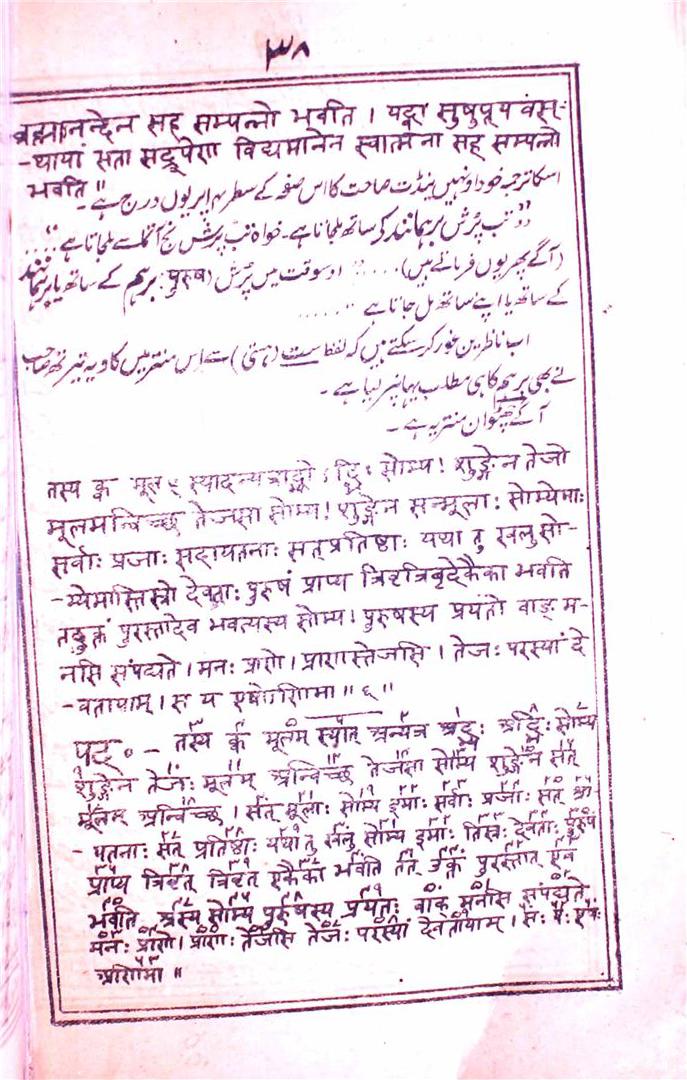 ३८
ब्रह्मानन्देन सह सम्पन्नो भवति । यद्वा सुषुप्त्य वंस्-
-थायां सता सद्रूपेण विद्यमानेन स्वात्मना सह सम्पन्नो
भवति॥
اسکا ترجمہ خود اونہیں پنڈت صاحب کا اس صفحہ کے سطر پر یوں درج ہے۔
"تب پُرش برہمانند کے ساتھ ملجاتا ہے۔ خواہ تب پرش نج آتما سے ملجاتا ہے" ....
(آگے پھر یوں فرماتے ہیں) ...." اوسوقت میں پرش (पुरुष) برہم کے ساتھ یا برہمانند
کے ساتھ یا اپنے ساتھ مل جاتا ہے ......
اب ناظرین غور کر سکتے ہیں کہ لفظ ست (ہستی) سے اس منتر میں کاویہ تیرتھ صاحب
نے بھی برہم کا ہی مطلب یہاں پر لیا ہے۔
آگے چھٹواں منتر یہ ہے۔
तस्य क्व मूलꣳ स्यादन्यत्राद्भ्यो ऽद्भिः सोम्य! शुङ्गेन तेजो
मूलमन्विच्छ तेजसा सोम्य! शुङ्गेन सन्मूलाः सोम्येमाः
सर्वाः प्रजाः सदायतनाः सत्प्रतिष्ठाः यथा तु खलु सो-
-म्येमास्तिस्रो देवताः पुरुषं प्राप्य त्रिवृत्त्रिवृदेकैका भवति
तदुक्तं पुरस्तादेव भवत्यस्य सोम्य। पुरुषस्य प्रयतो वाङ् म-
नसि संपद्यते। मनः प्राणे। प्राणस्तेजसि। तेजः परस्यां दे
-वतायाम्। स य एषोऽणिमा॥ ६॥
पद॰ - तस्य क्व मूलम् स्यात् अन्यत्र अद्भ्यः अद्भिः सोम्य
शुङ्गेन तेजः मूलम् अन्विच्छ तेजसा सोम्य शुङ्गेन सत्
मूलम् अन्विच्छ। सत् मूलाः सोम्य इमाः सर्वाः प्रजाः सत् आ
- यतनाः सत् प्रतिष्ठाः यथा तु खलु सोम्य इमाः तिस्रः देवताः पुरुषं
प्राप्य त्रिवृत् त्रिवृत् एकैका भवति तत् उक्तं पुरस्तात् एव
भवति अस्य सोम्य पुरुषस्य प्रयतः वाक् मनसि संपद्यते
मनः प्राणे। प्राणः तेजसि तेजः परस्यां देवतायाम्। सः यः एषः
अणिमा॥